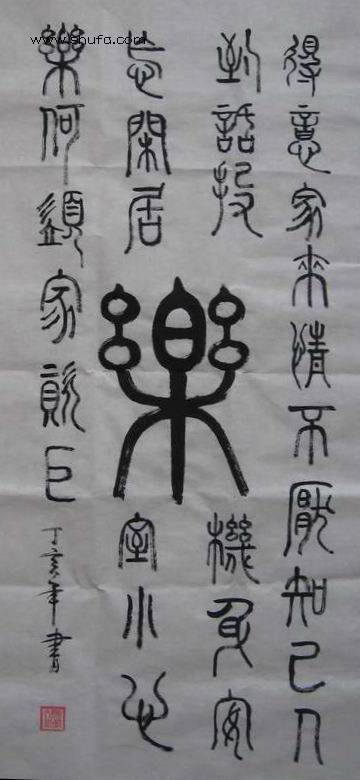 得意家來情不厭知己人
到話投機身安
忘閑居室小心
樂何須家資巨
樂
丁亥年書
www.shufa.com